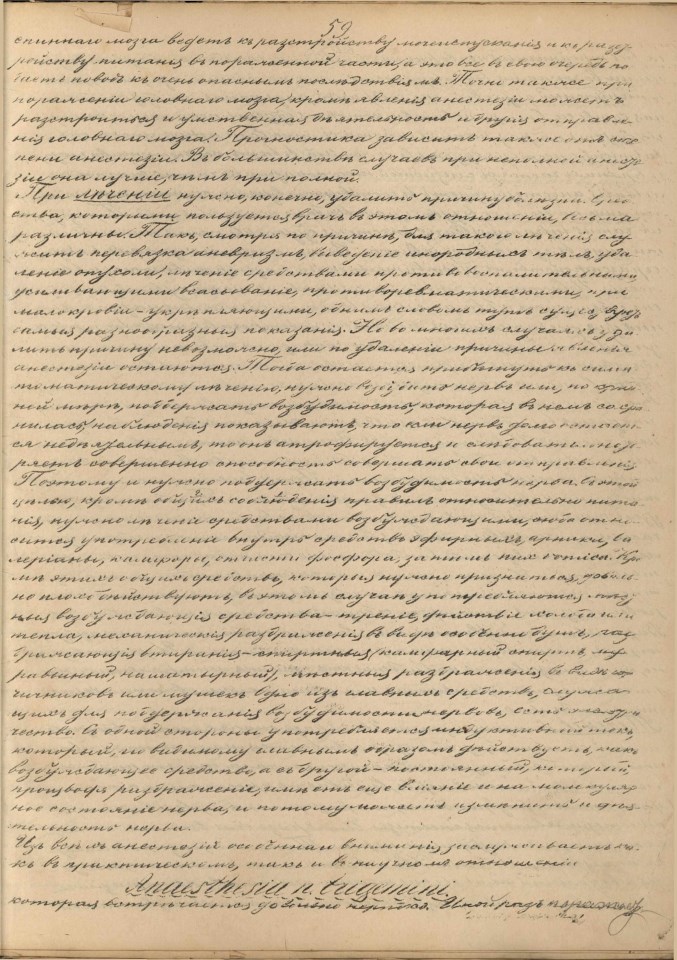 59
спиннаго мозга ведетъ къ разстройству мочеиспусканія и къ разст-
ройству питанія въ пораженной части, а это все въ свою очередь
поводъ къ очень опаснымъ послѣдствіямъ. Точно также при
пораженіи головнаго мозга, кромѣ явленій анестезіи можетъ
разстроиться и умственная дѣятельность и другія отправле-
нія головнаго мозга. Прогностика зависитъ также отъ сте-
пени анестезіи. Въ большинствѣ случаевъ при неполной анесте-
зіи она лучше, чѣмъ при полной.
При лѣченіи нужно, конечно, удалить причину болѣзни. Сред-
ства, которыми пользуется врачъ въ этомъ отношеніи, весьма
различны. Такъ, смотря по причинѣ, для такого лѣченія слу-
житъ перевязка аневризмъ, выведеніе инородныхъ тѣлъ, уда-
леніе опухоли, лѣченіе средствами противовоспалительными
усиливающими всасываніе, противоревматическими, при
малокровіи – укрѣпляющими, однимъ словомъ тутъ
самыя разнообразныя показанія. Но во многихъ случаяхъ уда-
лить причину невозможно, или по удаленіи причины явленія
анестезіи остаются. Тогда остается прибѣгнуть къ симп-
томатическому лѣченію, нужно возбудить нервъ или, по край-
ней мѣрѣ, поддержать возбудимость, которая въ немъ сохра-
нилась; наблюденія показываютъ, что если нервъ долго остает-
ся недѣятельнымъ, то онъ атрофируется и слѣдовательно те-
ряетъ совершенно способность совершать свои отправленія
Поэтому и нужно поддержать возбудимость нерва. Съ этой
цѣлью, кромѣ общихъ соблюденія правилъ относительно пита-
нія, нужно лѣченіе средствами возбуждающими, сюда отно-
сится употребленіе внутрь средствъ эфирныхъ, арники, ва-
леріаны, камфоры, отчасти фосфора, за тѣмъ Кро-
мѣ этихъ общихъ средствъ, которыя нужно признаться, доволь-
но плохо дѣйствуютъ, въ этомъ случаѣ употребляются мѣст-
ныя возбуждающія средства – треніе, дѣйствіе холода или
тепла, механическія раздраженія въ видѣ особенно раз-
дражающія втиранія – спиртныя (камфарный спиртъ, му-
равьиный, нашатырный), мѣстныя раздраженія въ видѣ гор-
чичниковъ или мушекъ. Одно изъ главныхъ средствъ, служа-
щихъ для поддержанія возбудимости нервовъ, есть электри-
чество. Съ одной стороны употребляется индуктивный токъ,
который, по видимому главнымъ образомъ дѣйствуетъ, какъ
возбуждающее средство, а съ другой – постоянный, который,
производя раздраженіе, имѣетъ еще вліяніе и на молекуляр-
ное состояніе нерва, и потому можетъ измѣнить и дѣя-
тельность нерва.
Изъ всѣхъ анестезій особеннаго вниманія заслуживаетъ
въ практическомъ, такъ и въ научномъ отношеніи
Anaesthesia n. trigemini.
которая встрѣчается довольно нерѣдко. Иной разъ